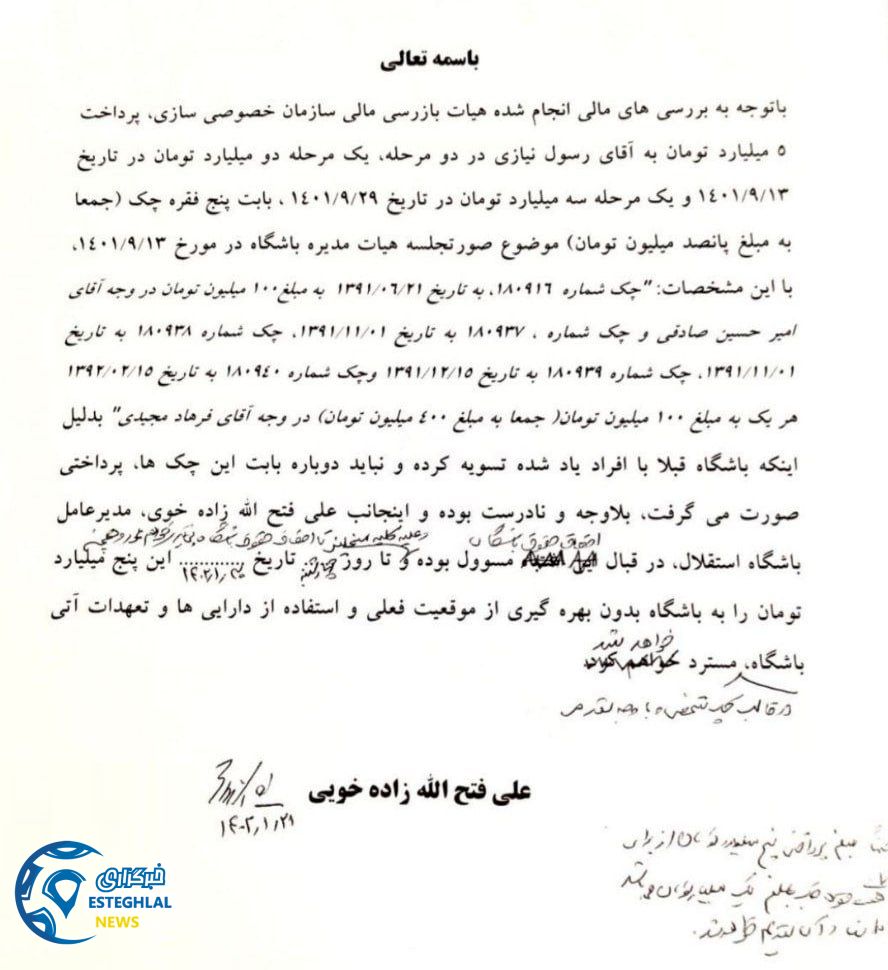 باسمه تعالی
باتوجه به بررسی های مالی انجام شده هیات بازرسی مالی سازمان خصوصی سازی، پرداخت
۵ میلیارد تومان به آقای رسول نیازی در دو مرحله، یک مرحله دو میلیارد تومان در تاریخ
۱۴۰۱/۹/۱۳ و یک مرحله سه میلیارد تومان در تاریخ ۱۴۰۱/۹/۲۹ ، بابت پنج فقره چک (جمعا
به مبلغ پانصد میلیون تومان) موضوع صورتجلسه هیات مدیره باشگاه در مورخ ۱۴۰۱/۹/۱۳،
با این مشخصات: "چک شماره ۱۸۰۹۱۶، به تاریخ ۱۳۹۱/۰۶/۲۱ به مبلغ ۱۰۰ میلیون تومان در وجه آقای
امیر حسین صادقی و چک شماره ، ۱۸۰۹۳۷ به تاریخ ۱۳۹۱/۱۱/۰۱، چک شماره ۱۸۰۹۳۸ به تاریخ
۱۳۹۱/۱۱/۰۱، چک شماره ۱۸۰۹۳۹ به تاریخ ۱۳۹۱/۱۲/۱۵ وچک شماره ۱۸۰۹۴۰ به تاریخ ۱۳۹۲/۰۲/۱۵
هر یک به مبلغ ۱۰۰ میلیون تومان( جمعا به مبلغ ۴۰۰ میلیون تومان) در وجه آقای فرهاد مجیدی" بدلیل
اینکه باشگاه قبلا با افراد یاد شده تسویه کرده و نباید دوباره بابت این چک ها، پرداختی
صورت می گرفت، بلاوجه و نادرست بوده و اینجانب علی فتح الله زاده خوی، مدیرعامل
احقاق حقوق باشگاه
باشگاه استقلال، در قبال مسوول بوده و تا روز تاریخ این پنج میلیارد
تومان را به باشگاه بدون بهره گیری از موقعیت فعلی و استفاده از دارایی ها و تعهدات آتی
خواهد شد
باشگاه، مسترد خواهم کرد.
در قالب چک
علی فتح الله زاده خویی
۱۴۰۲/۱/۲۱
مبلغ پنج میلیارد تومان از
خبرگزاری
ESTEGHLAL
NEWS